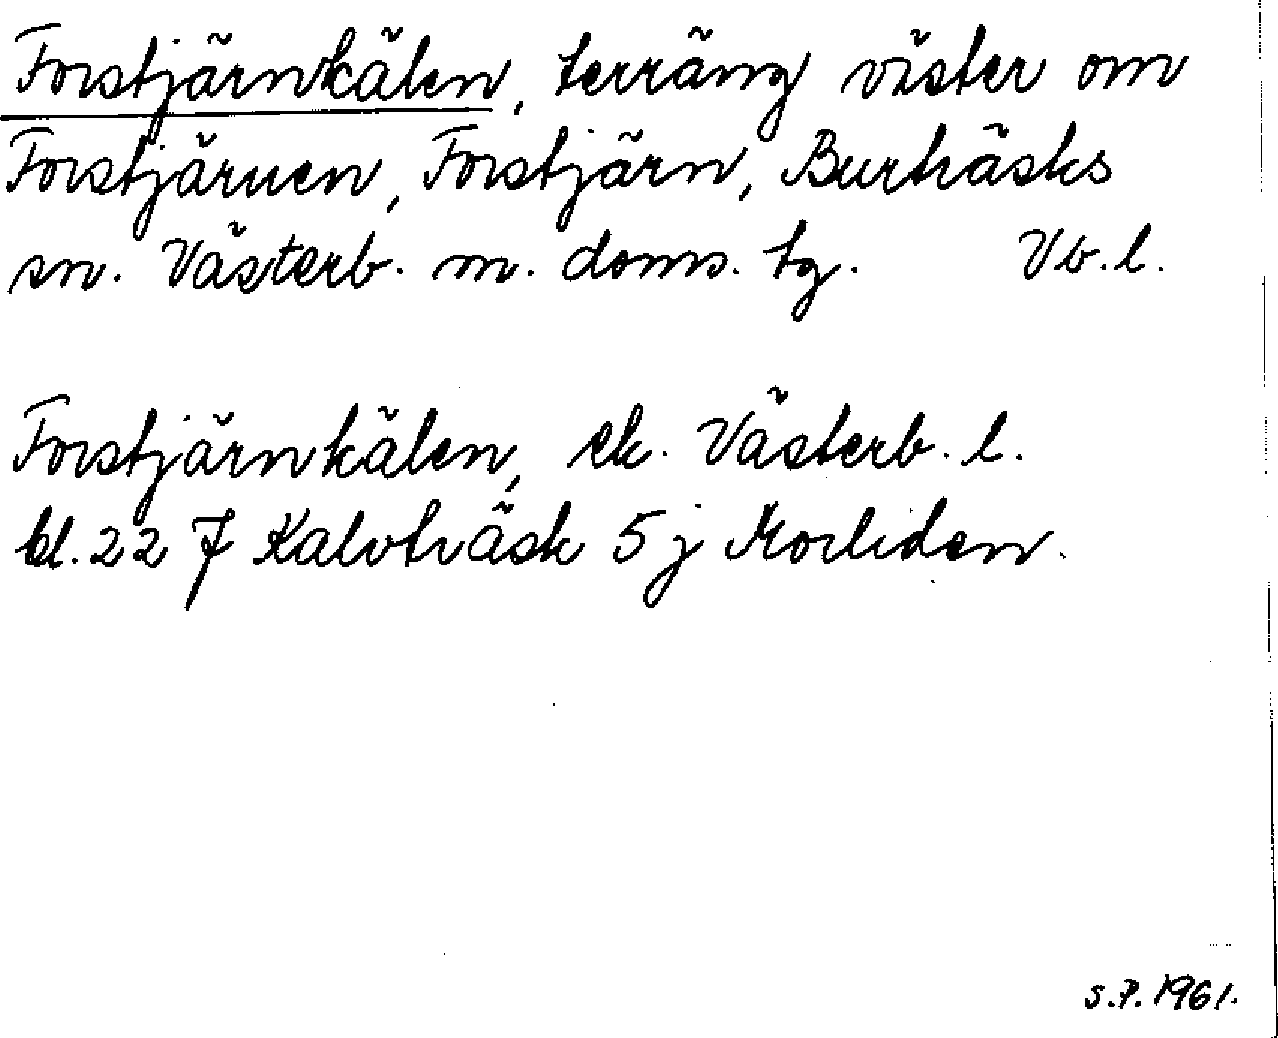 Forstjärnkälen, terräng väster om
Forstjärnen, Forstjärn, Burträsks
sn. Västerb. m. doms. tg. Vb. l.
Forstjärnkälen, ek. Västerb. l.
bl. 22 J Kalvträsk 5 j Morliden.
S.P. 1961.